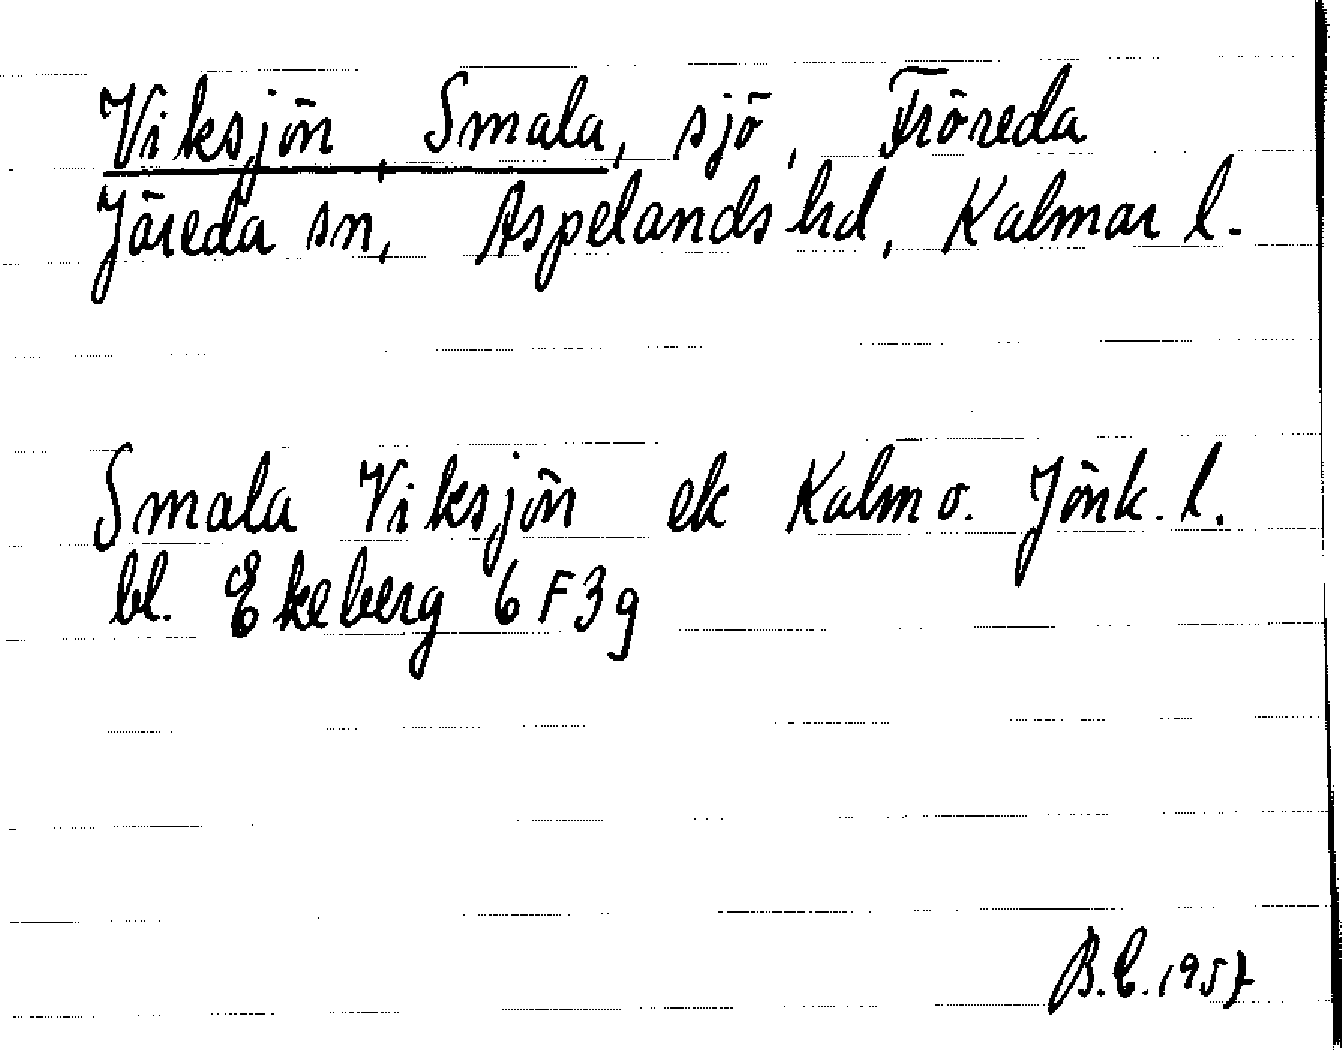 Viksjön, Smala, sjö, Fröreda
Järeda sn, Aspelands hd, Kalmar l.
Smala Viksjön ek Kalm o. Jönk. l.
bl. Ekeberg 6 F 3 g
B.E. 1957